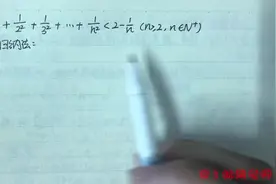 + 1/2² + 1/3² + ⋯ + 1/n² < 2 - 1/n (n≥2, n∈N⁺)
归纳法: